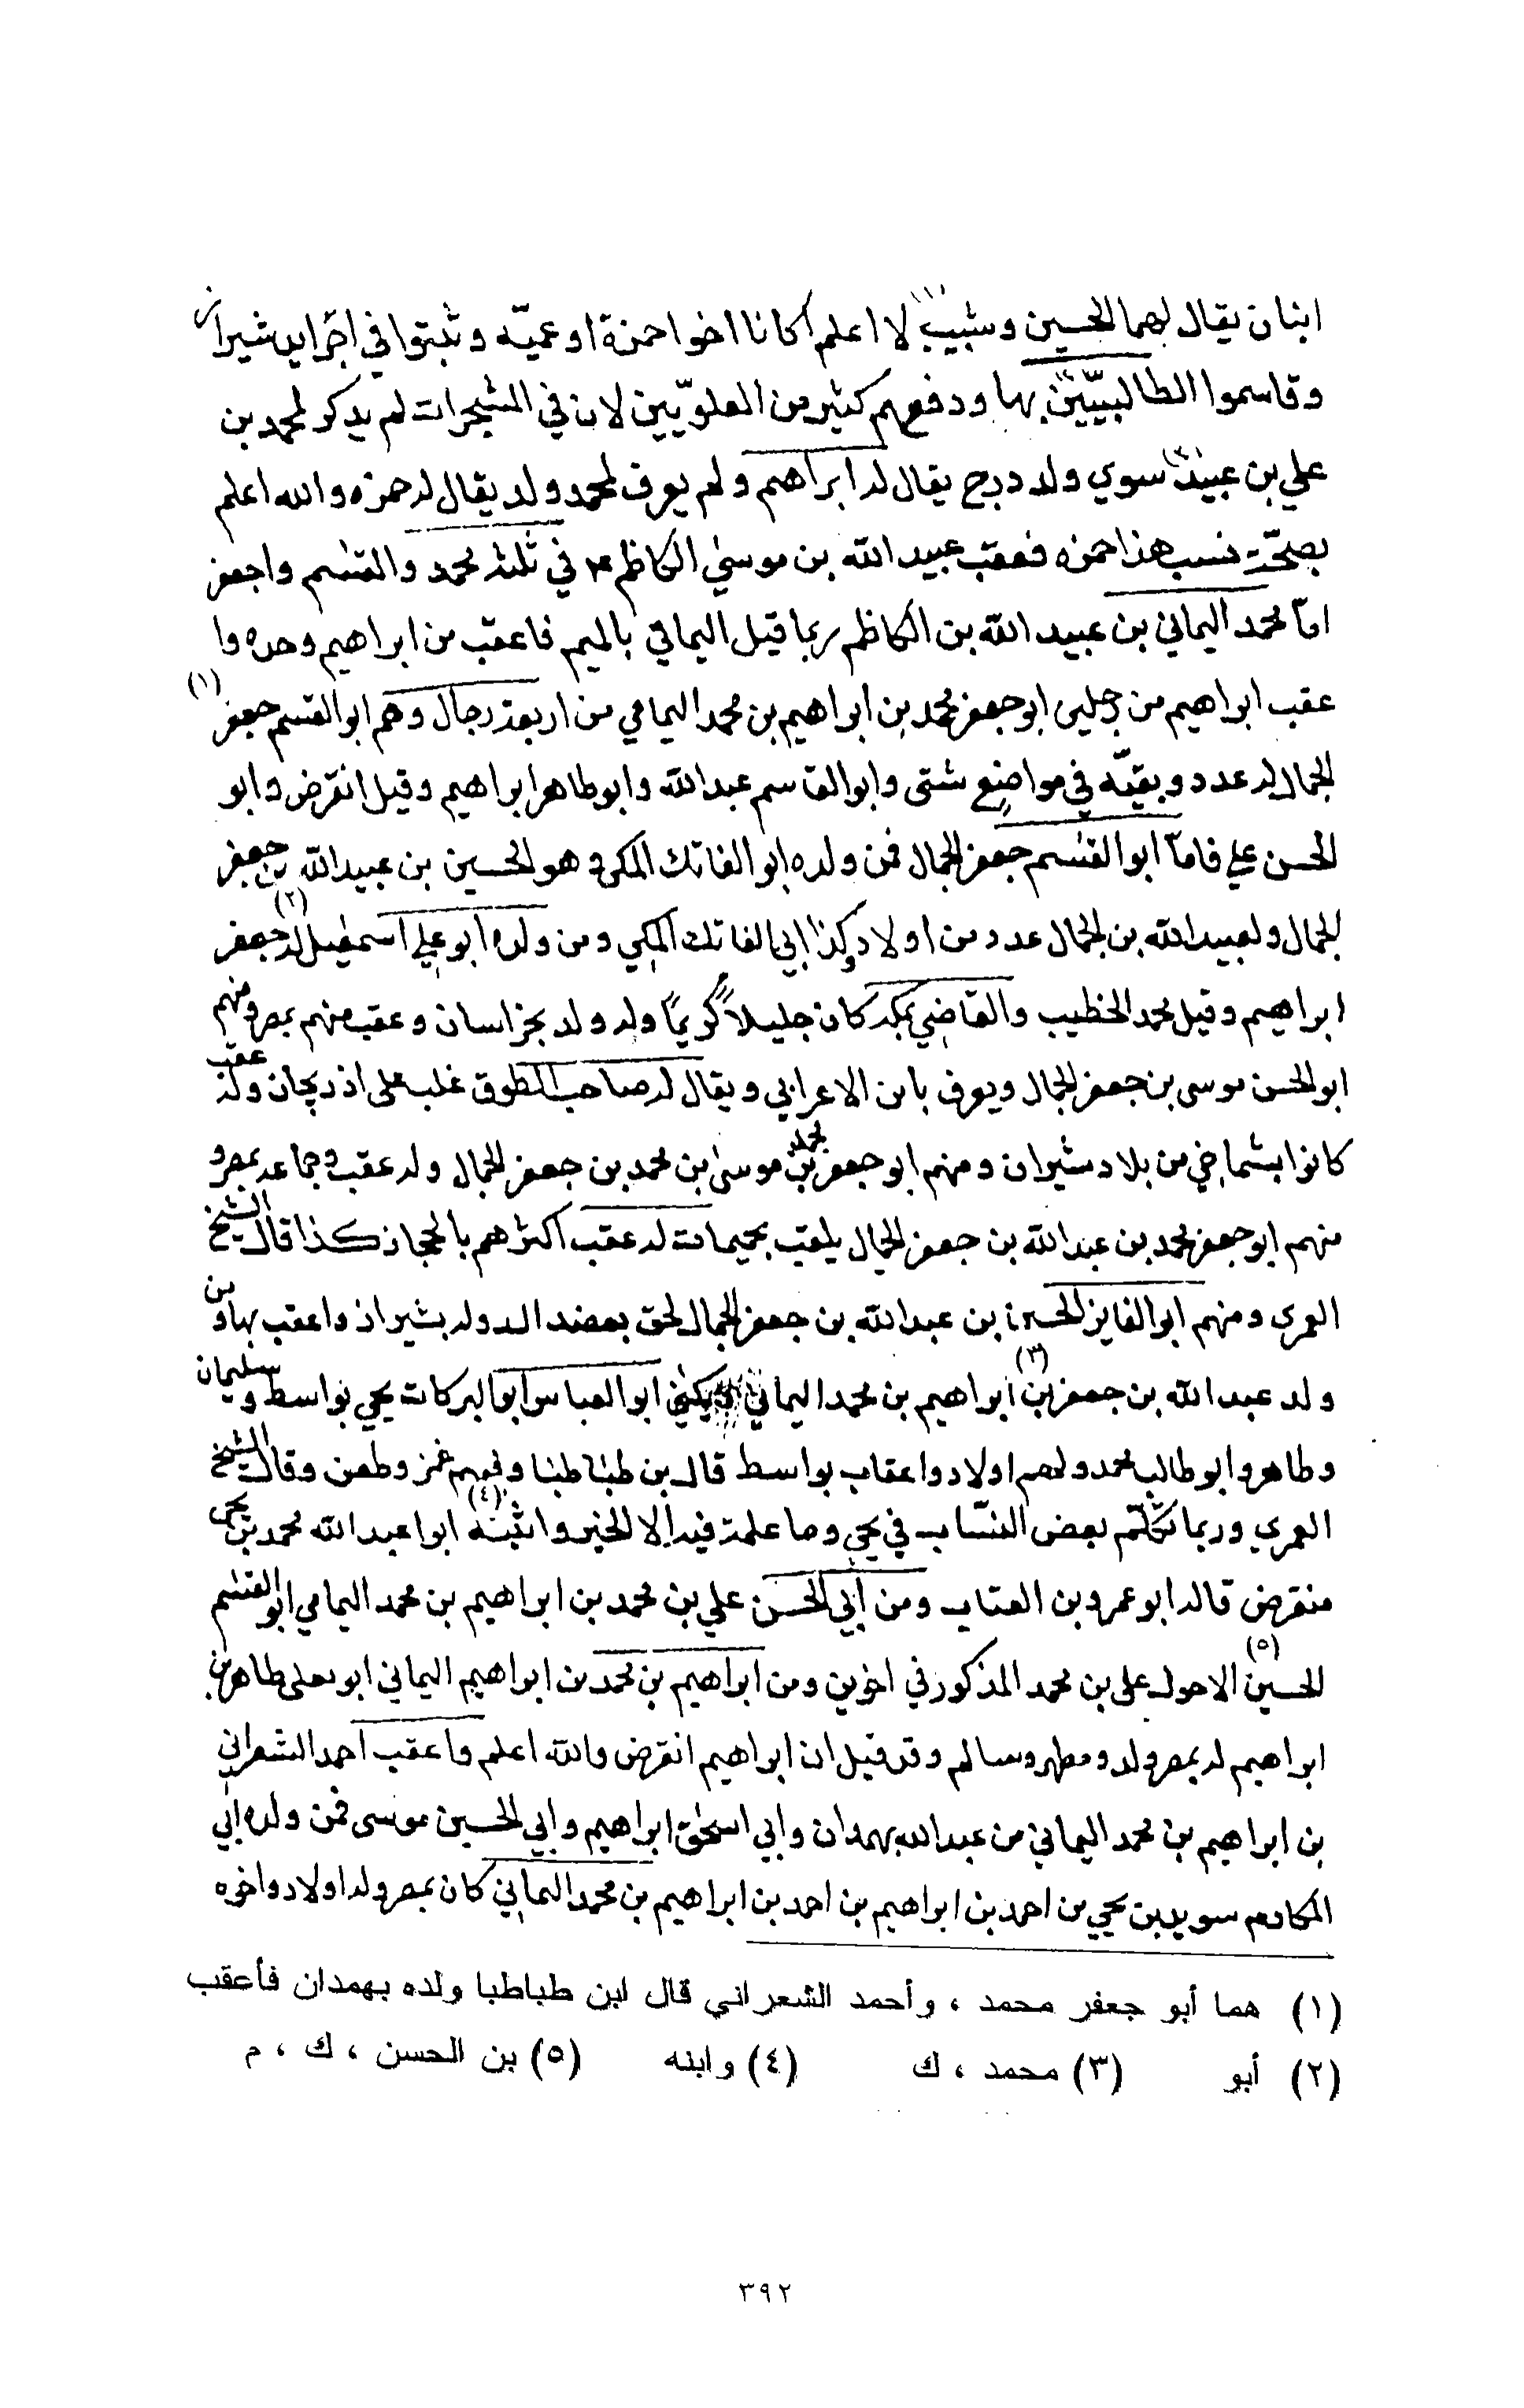 ابنان يقال لهما الحسين وشبيب لا اعلم أكانا اخوا حمزة او عميّه وثبتوا في اجرايد شيراز
وقاسموا الطالبيّين بها ودفعهم كثير من العلويّين لان في المشجرات لم يذكر لمحمد بن
علي بن عبيد سوي ولد درج يقال له ابراهيم ولم يعرف لمحمد ولد يقال له حمزه والله اعلم
بصحّة نسب هذا حمزه فعقب عبيد الله بن موسىٰ الكاظم ع في ثلثه محمد والقسٰم واجعفر
امّا محمد اليماني بن عبيد الله بن الكاظم ربما قيل اليمامي بالميم فاعقب من ابراهيم وحده وا
عقب ابراهيم من رجلين (١) ابو جعفر محمد بن ابراهيم بن محمد اليمامي من اربعة رجال وهم ابو القسم جعفر
الجمال له عدد وبقيّه في مواضع شتى وابو القاسم عبد الله وابو طاهر ابراهيم وقيل انقرض وابو
الحسن علي فامّا ابو القسٰم جعفر الجمال فمن ولده ابو الفاتك المكي وهو الحسين بن عبيد الله بن جعفر
الجمال ولعبيد الله بن الجمال عدد من اولاد وكذا ابي الفاتك المكي ومن ولده ابو علي اسمعيل له (٢) جعفر
ابراهيم وقيل محمد الخطيب والقاضي بمكه كان جليلاً كريمًا وله ولد بخراسان وعقب منهم بمصر ومنهم
ابو الحسن موسى بن جعفر الجمال ويعرف بابن الاعرابي ويقال له صاحب الطوق غلب على اذربيجان وله عقب
كانوا بشماخي من بلاد شيروان ومنهم ابو جعفر محمد بن موسىٰ بن محمد بن جعفر الجمال وله عقب وجماعه بمصر و
منهم ابو جعفر محمد بن عبد الله بن جعفر الجمال يلقب بحميمات له عقب اكثرهم بالحجاز كذا قال الشيخ
العمري ومنهم ابو الفايز الحسين بن عبد الله بن جعفر الجمال لحق بعضد الدوله بشيراز واعقب بها ومن
ولد عبد الله بن جعفر بن (٣) ابراهيم بن محمد اليماني ويكنىٰ ابو العباس ابو البركات يحيي بواسط وسليمان
وطاهر وابو طالب محمد ولهم اولاد واعقاب بواسط قال بن طباطبا وفيهم غمز وطعن وقال الشيخ
العمري وربما تكلّم بعض النسّاب في يحيي وما علمت فيه الا الخير واثبته (٤) ابوا عبد الله محمد بن يحيى
منقرض قاله ابو عمرو بن العتاب ومن أبي الحسن علي بن محمد بن ابراهيم بن محمد اليمامي ابو القسٰم
الحسين (٥) الاحول علي بن محمد المذكور في اخوين ومن ابراهيم بن محمد بن ابراهيم اليماني ابو يعلى طاهر بن
ابراهيم له بمصر ولد ومطهر وسالم وقد قيل ان ابراهيم انقرض والله اعلم واعقب احمد الشعراني
بن ابراهيم بن محمد اليماني من عبد الله بهمدان وابي اسحٰق ابراهيم وابي الحسين موسى فمن ولده ابي
المكارم سويد بن يحيي بن احمد بن ابراهيم بن احمد بن ابراهيم بن محمد اليماني كان بمصر وله اولاد واخوه
(١) هما أبو جعفر محمد ، وأحمد الشعراني قال ابن طباطبا ولده بهمدان فأعقب
(٢) أبو (٣) محمد ، ك (٤) وابنه (٥) بن الحسن ، ك ، م
٣٩٢